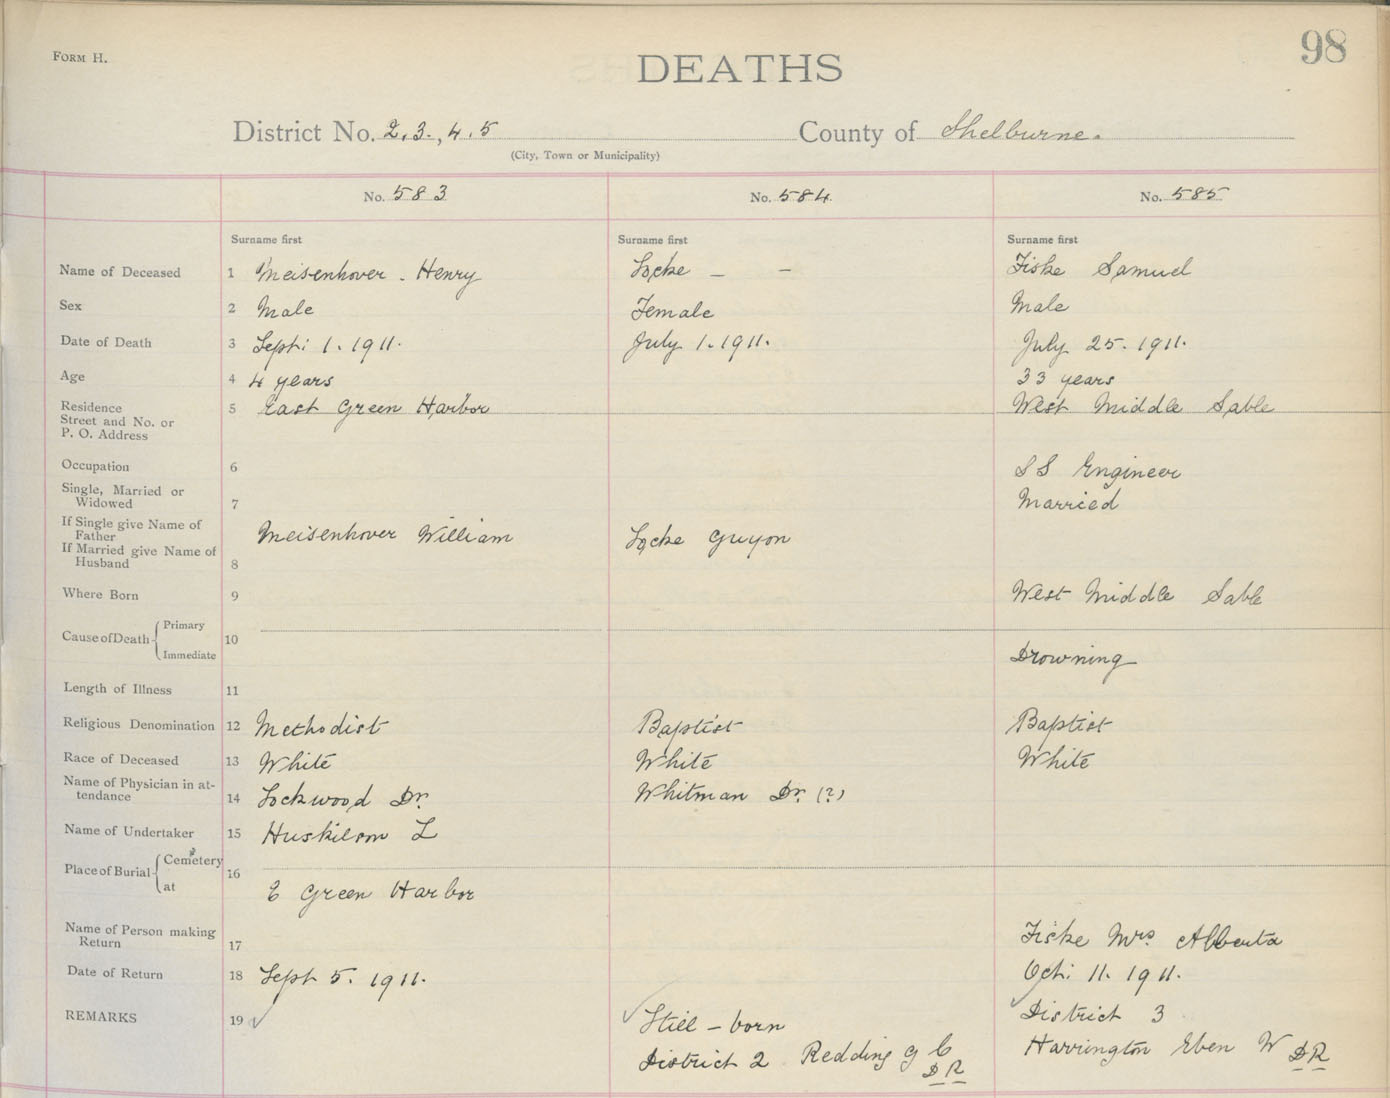 Form H.
98
DEATHS
District No. 2.3.,4.5 County of Shelburne.
(City, Town or Municipality)
No. 583 No. 584. No. 585
Surname first Surname first Surname first
Name of Deceased 1 Meisenhover. Henry Locke — — Fiske Samuel
Sex 2 Male Female Male
Date of Death 3 Sept: 1. 1911. July 1. 1911. July 25. 1911.
Age 4 4 years 33 years
Residence 5 East Green Harbor West Middle Sable
Street and No. or
P. O. Address
Occupation 6 SS Engineer
Single, Married or
Widowed 7 Married
If Single give Name of
Father Meisenhover William Locke Guyon
If Married give Name of
Husband 8
Where Born 9 West Middle Sable
Cause of Death Primary 10
Immediate Drowning
Length of Illness 11
Religious Denomination 12 Methodist Baptist Baptist
Race of Deceased 13 White White White
Name of Physician in at-
tendance 14 Lockwood Dr. Whitman Dr. (?)
Name of Undertaker 15 Huskilson L
Place of Burial Cemetery 16
at E Green Harbor
Name of Person making
Return 17 Fiske Mrs Alberta
Date of Return 18 Sept 5. 1911. Oct: 11. 1911.
REMARKS 19 ✓ ✓ Still-born ✓ District 3
District 2 Redding G C DR Harrington Eben W DR